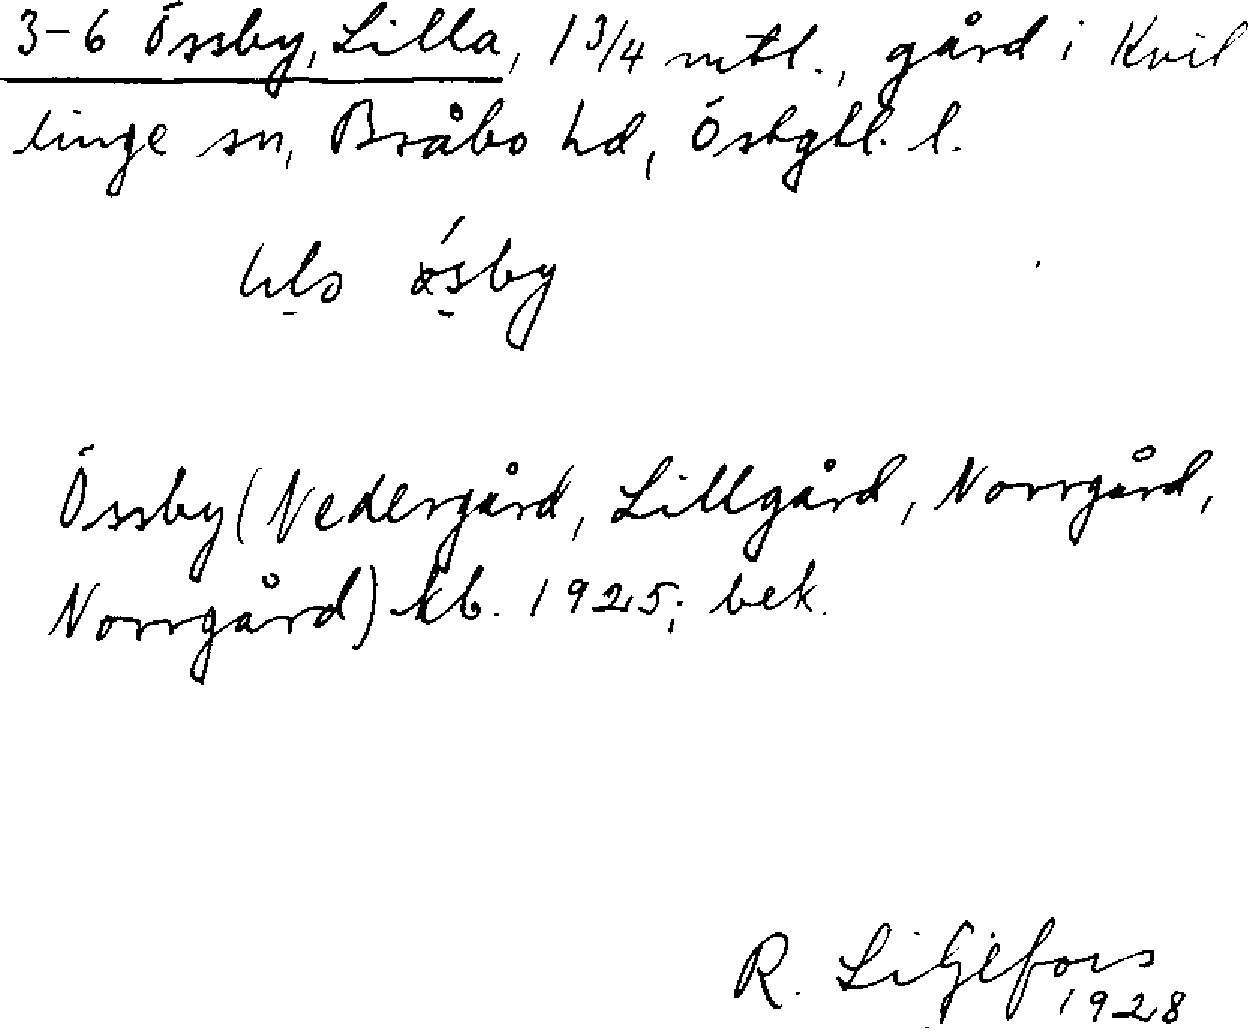 3-6 Össby, Lilla, 1 3/4 mtl., gård i Kvil
linge sn, Bråbo hd, Östgtl. l.
ösby
Össby (Nedergård, Lillgård, Norrgård,
Norrgård) kb. 1925; bek.
R. Liljefors
1928